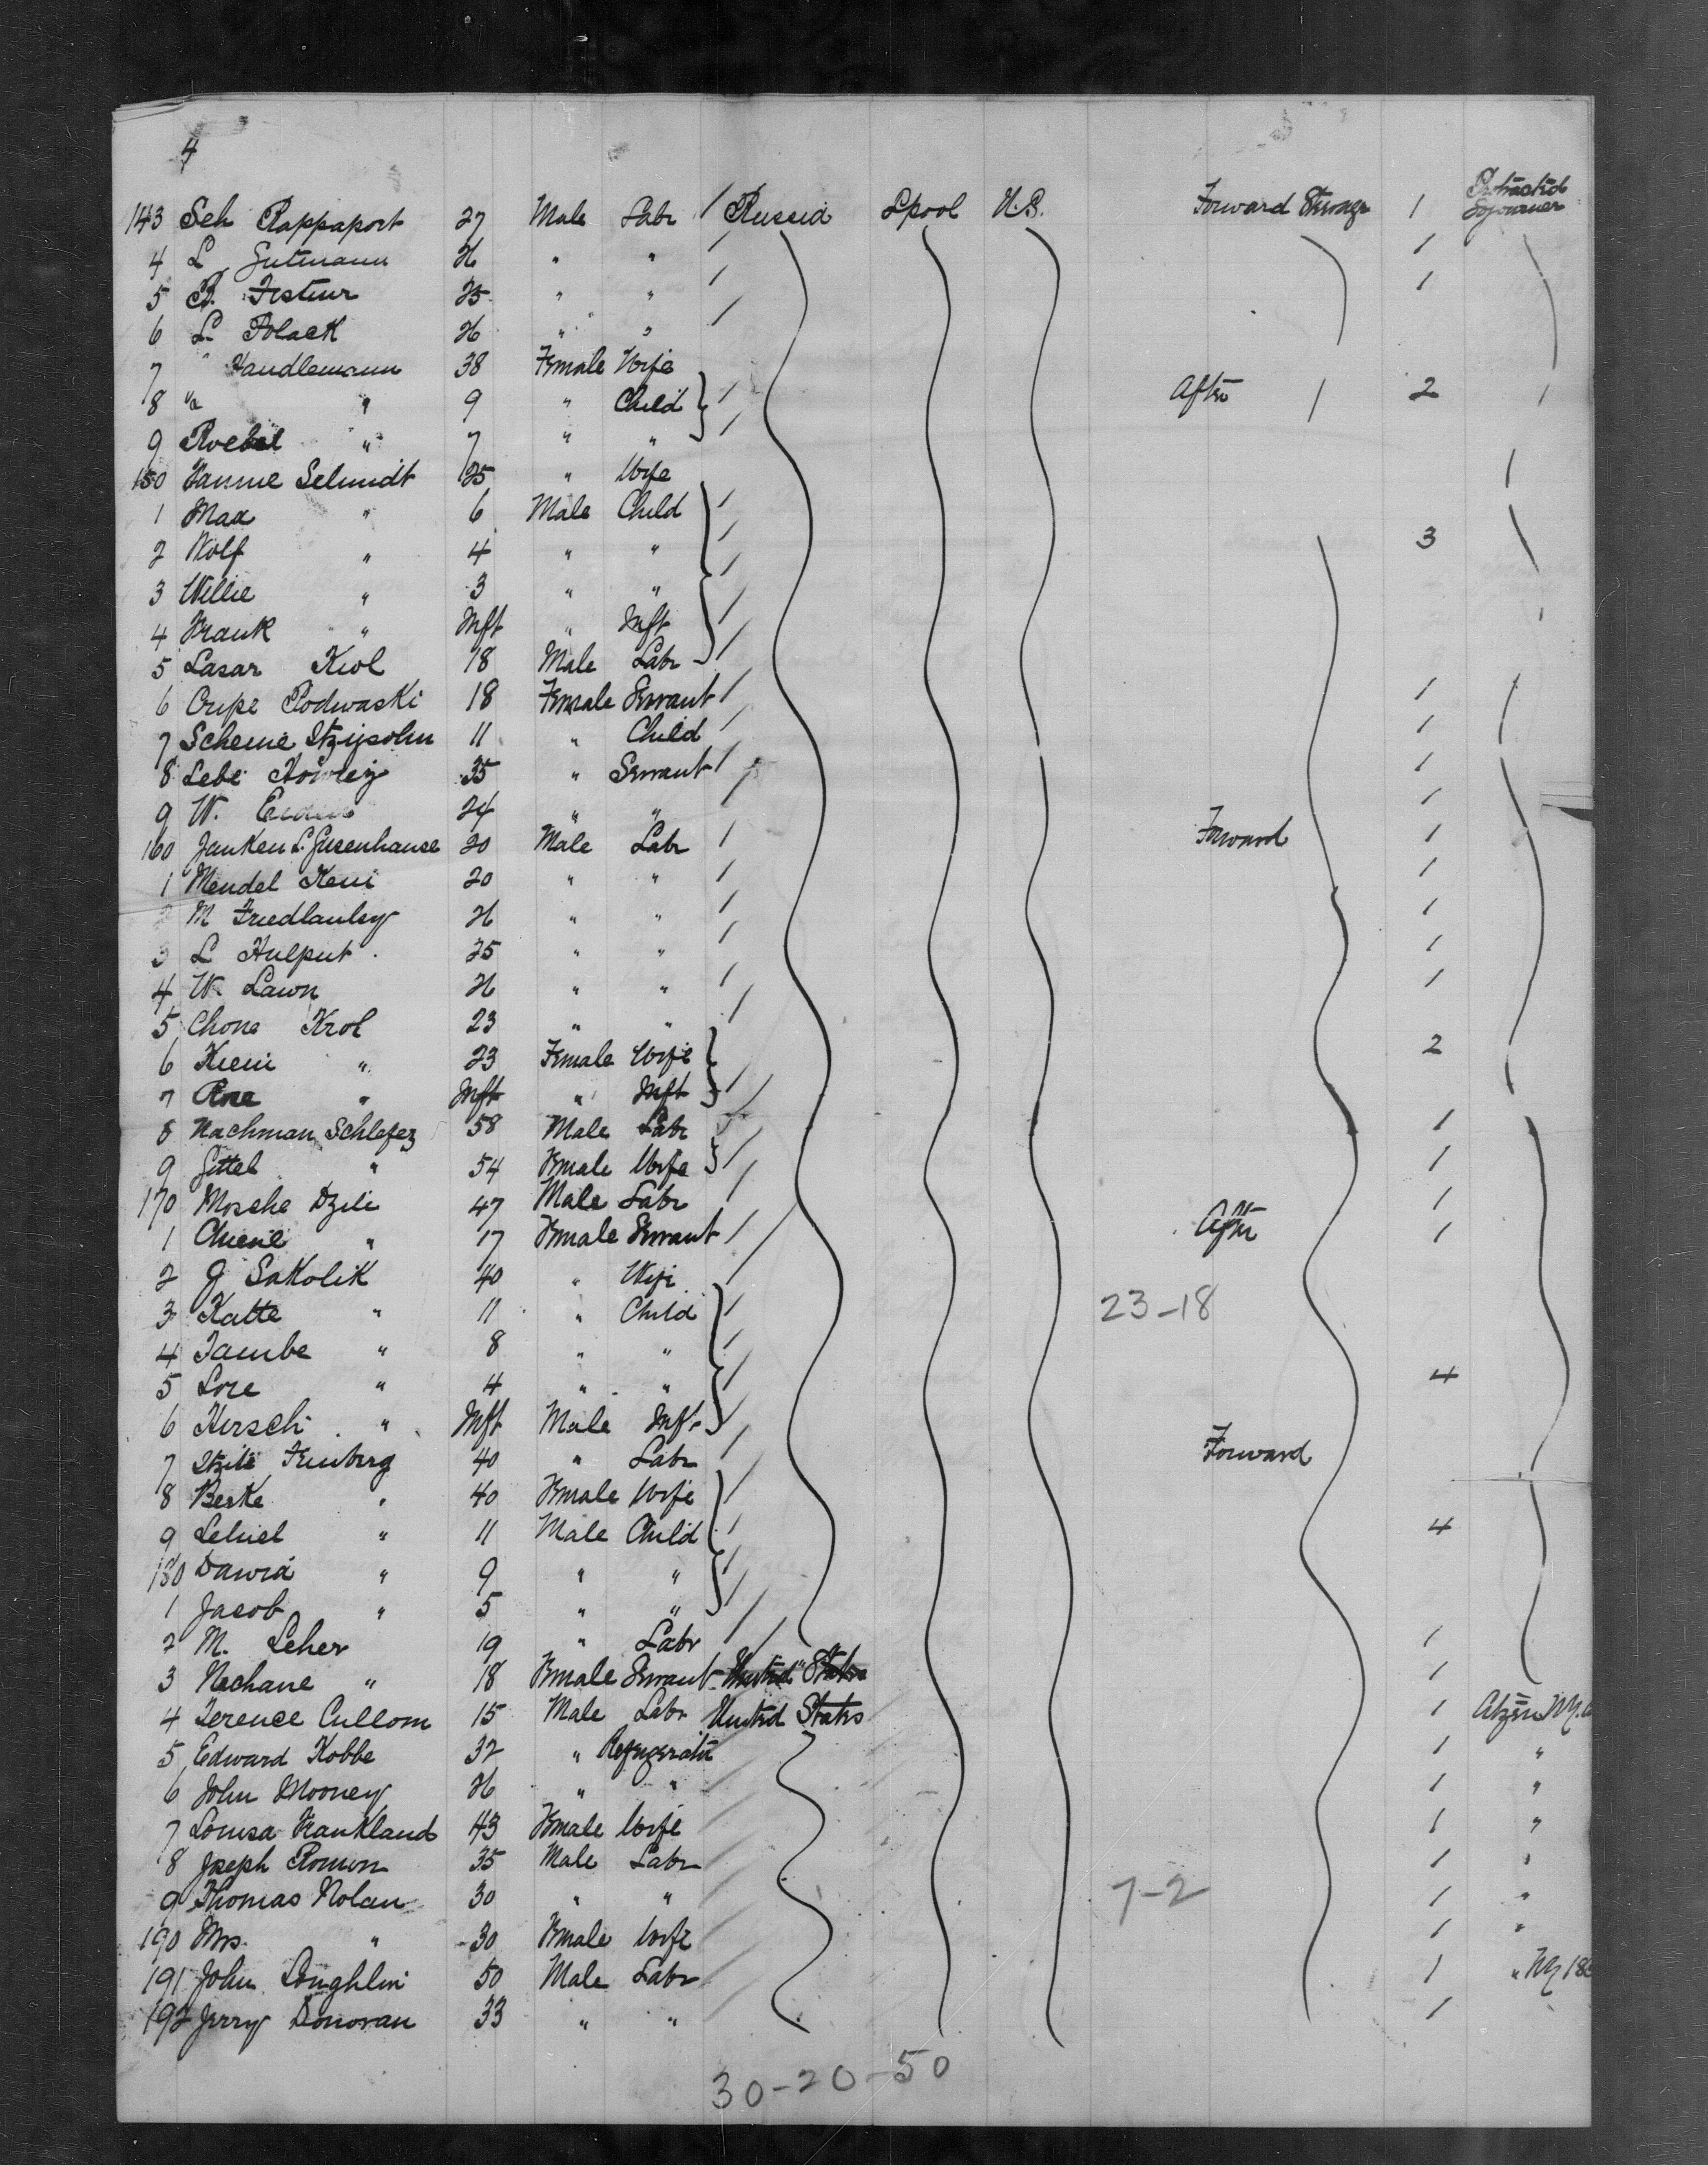 4
143 Sch Rappaport 27 Male Labr / Russia Lpool U.S. Forward Steerage 1 Protracted Sojourner
4 L Gutmann 26 " " / 1
5 B. 25 " " / 1
6 L. Polack 26 " " /
7 " Handlemann 38 Female Wife
8 " " 9 " Child / After 2
9 " 7 " " /
150 Hanne Schmidt 25 " Wife
1 Max " 6 Male Child /
2 Wolf " 4 " " / 3
3 Willie " 3 " " /
4 Frank " Inft " Inft /
5 Lasar Kiol 18 Male Labr /
6 Podwaski 18 Female Servant / 1
7 Scheine 11 " Child / 1
8 Lebe 35 " Servant / 1
9 W. 24 " " / 1
160 Janken L. Gusenhause 20 Male Labr / Forward 1
1 Mendel 20 " " / 1
2 M 26 " " / 1
3 L Hulput 25 " " / 1
4 W. Lawn 26 " " / 1
5 Chone Krol 23 " " /
6 " 23 Female Wife 2
7 " Inft " Inft /
8 Nachman Schlefez 58 Male Labr 1
9 Gittel " 54 Female Wife / 1
170 Mosche Dzili 47 Male Labr / 1
1 " 17 Female Servant / After 1
2 G Sakolik 40 " Wife /
3 Katte " 11 " Child / 23-18
4 Taube " 8 " " /
5 Lore " 4 " " / 4
6 Hersch " Inft Male Inft /
7 40 " Labr / Forward
8 Berke " 40 Female Wife /
9 " 11 Male Child / 4
180 Dawid " 9 " " /
1 Jacob " 5 " " /
2 M. Leher 19 " Labr / 1
3 Nechane " 18 Female Servant United States 1
4 Terence Cullom 15 Male Labr United States 1
5 Edward Kobbe 32 " 1 "
6 John Mooney 26 " " 1 "
7 Louisa Frankland 43 Female Wife 1 "
8 Joseph 35 Male Labr 1 "
9 Thomas Nolan 30 " " 7-2 1 "
190 Mrs. " 30 Female Wife 1 "
191 John Loughlin 50 Male Labr 1 "
192 Jerry Donovan 33 " " 1
30-20-50